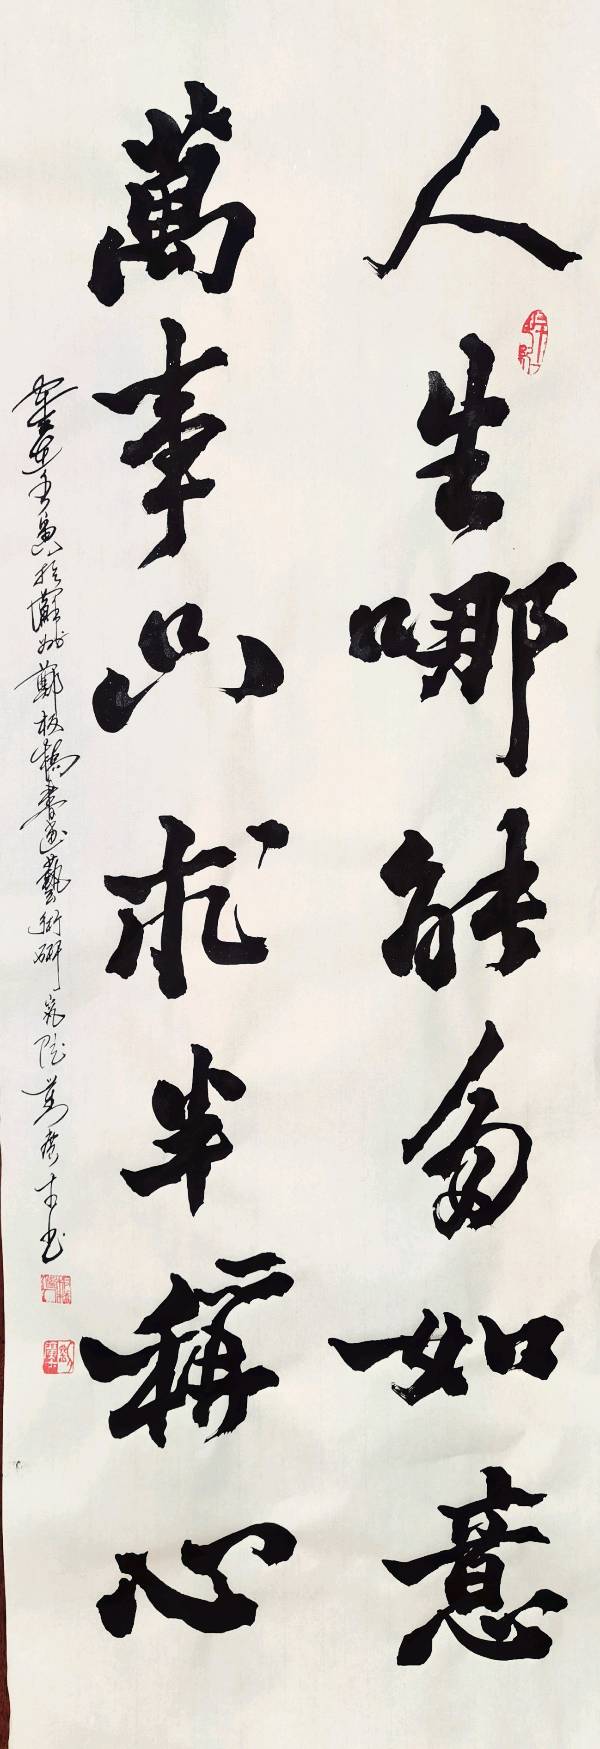 人生哪能多如意
萬事只求半稱心
於蘇州鄭板橋書画藝術研究院